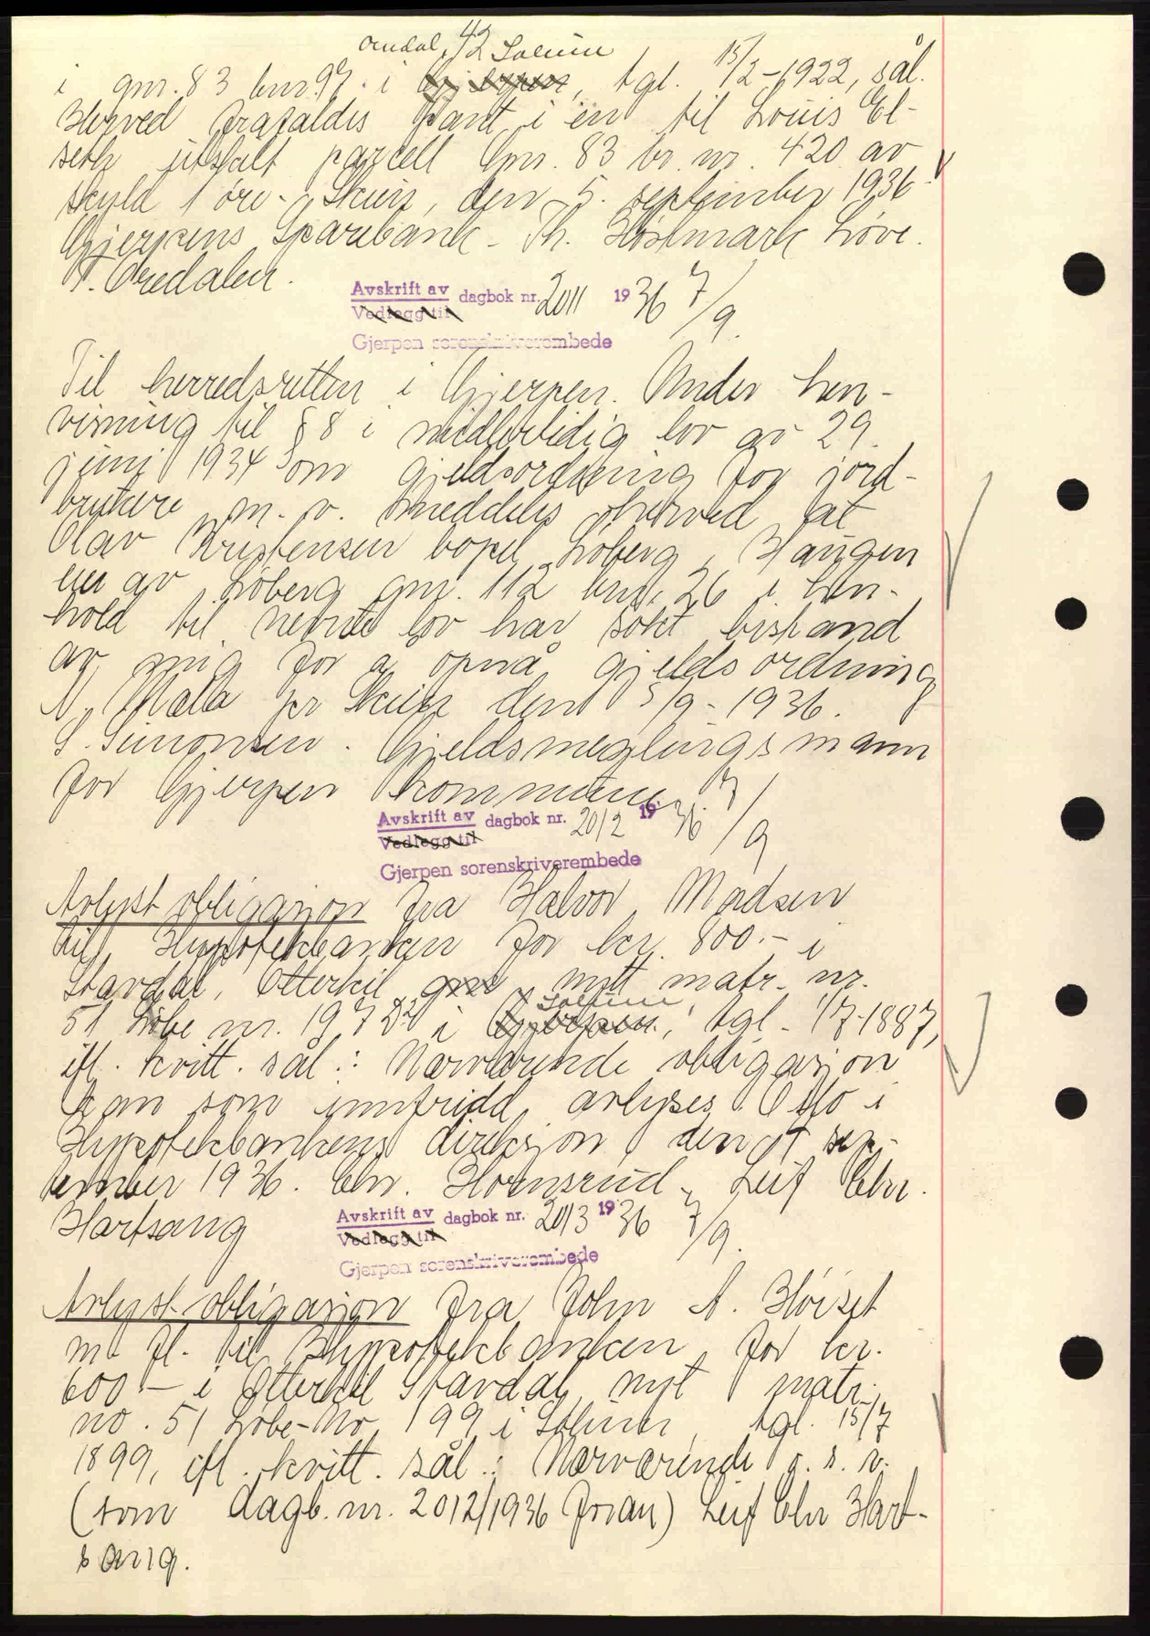 omdal, 42 Solum
i gnr. 83 bnr. 97 i Gjerpen, tgl. 15/2-1922, sål.
Herved frafaldes pant i en til Louis El-
seth utskilt parcell Gnr. 83 br. nr. 420 av
skyld 1 øre - Skien, den 5. september 1936.
Gjerpens Sparebank - Th. Holmark Løve.
A. Oredalen.
Avskrift av dagbok nr. 2011 1936 7/9.
Vedlegg til
Gjerpen sorenskriverembede
Til herredsretten i Gjerpen. Under hen-
visning til § 8 i midlertidig lov av 29.
juni 1934 om gjeldsordning for jord-
brukere m. v. meddeles herved at
Olav Kristensen bopel Loberg, Haugen
eier av Loberg gnr. 112 bnr. 26 i hen-
hold til nevnte lov har søkt bistand
av mig for å opnå gjeldsordning
N. Mæla pr Skien den 5/9 - 1936.
S. Simonsen. Gjeldsmeglingsmann
for Gjerpen kommune
Avskrift av dagbok nr. 2012 1936 7/9
Vedlegg til
Gjerpen sorenskriverembede
Avlyst obligasjon fra Halvor Madsen
til Hypotekbanken for kr. 800.- i
Stavdal, Otterkil gnr nytt matr. nr.
51 Løbe nr. 197 i Gjerpen, Solum tgl. 1/7-1887,
ifl. kvitt. sål.: Nærværende obligasjon
kan som innfridd avlyses. Oslo i
Hypotekbankens direksjon den sep-
tember 1936. Chr. Hornsrud - Leif Chr.
Hartsang
Avskrift av dagbok nr. 2013 1936 7/9.
Vedlegg til
Gjerpen sorenskriverembede
Avlyst obligasjon fra John A. Høiset
m. fl. til Hypotekbanken for kr.
600.- i Otterkil Stavdal, nyt matr.
no. 51 Løbe-No 199 i Solum, tgl. 15/7
1899, ifl. kvitt. sål.: Nærværende o. s. v.
(som dagb. nr. 2012/1936 foran) Leif Chr Hart-
sang.